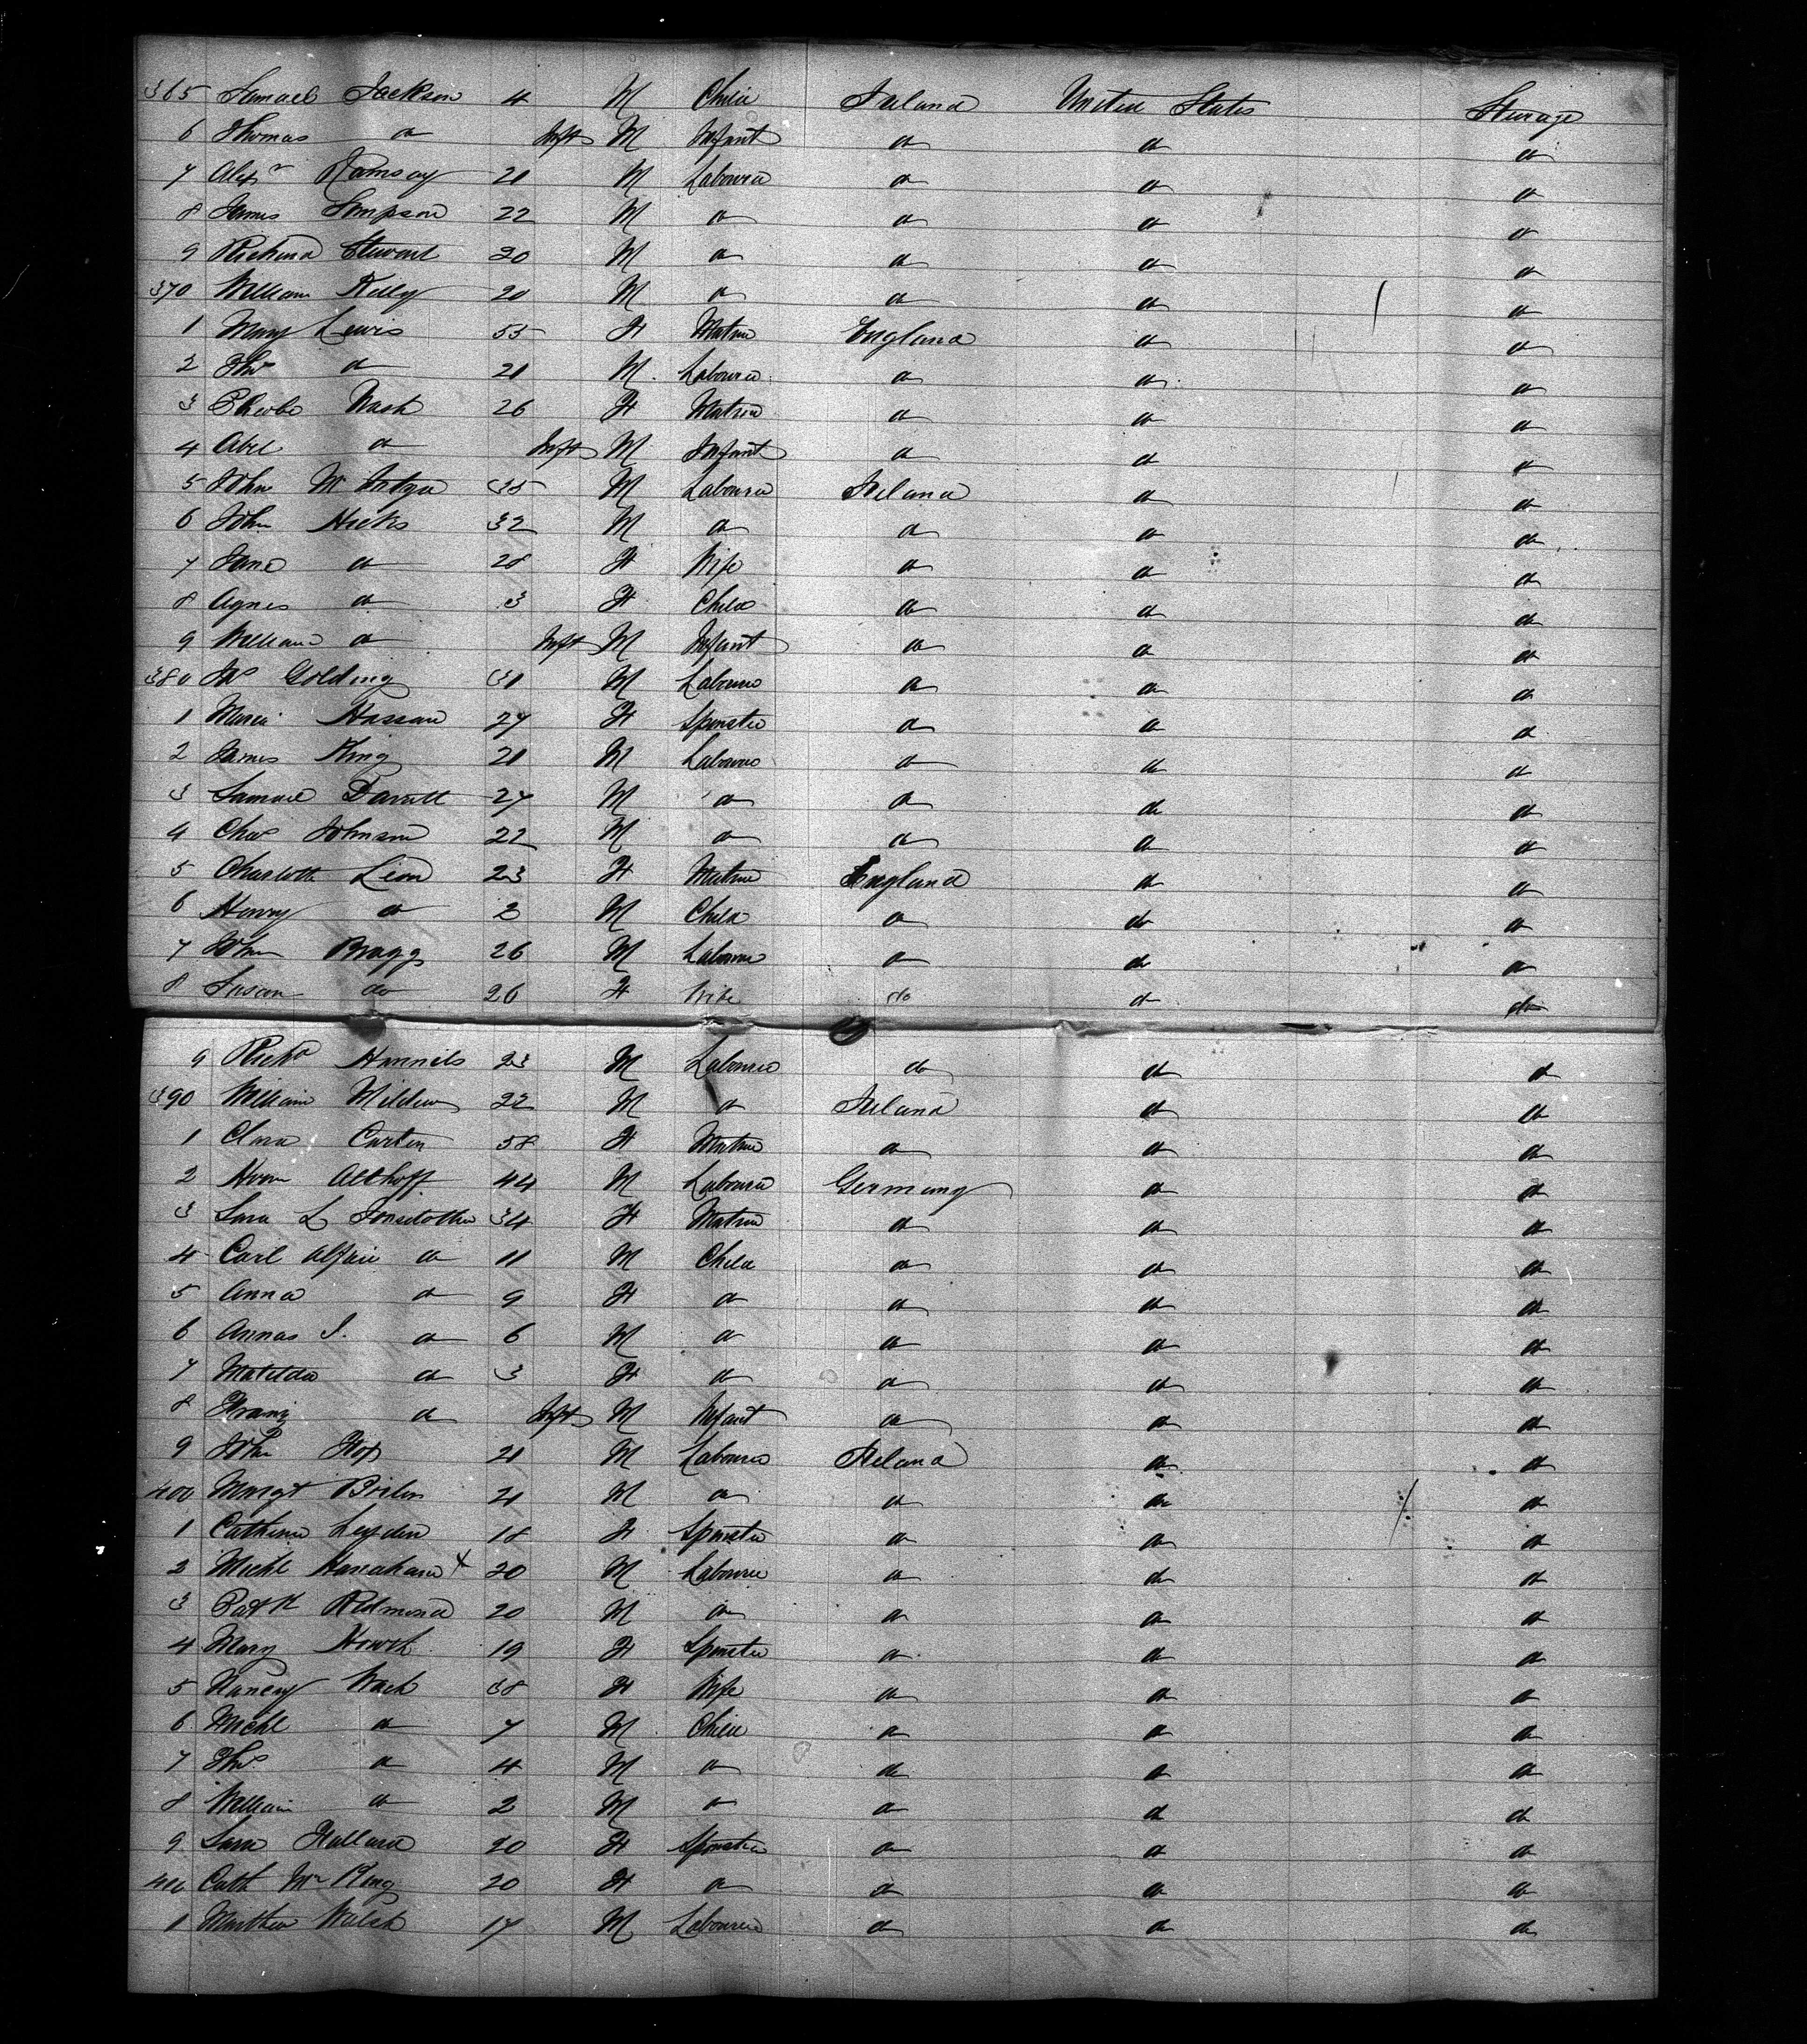 365 Samuel Jackson 4 M Child Ireland United States Steerage
6 Thomas do Inft M Infant do do do
7 Alexr Ramsay 21 M Labourer do do do
8 James Simpson 22 M do do do do
9 Richard Stewart 20 M do do do do
370 William Kelly 20 M do do do do
1 Mary Lewis 55 F Matron England do do
2 Thos do 21 M Labourer do do do
3 Phoebe Nash 26 F Matron do do do
4 Abel do Inft M Infant do do do
5 John 35 M Labourer Ireland do do
6 John Hicks 32 M do do do do
7 Jane do 28 F Wife do do do
8 Agnes do 3 F Child do do do
9 William do Inft M Infant do do do
380 Golding 31 M Labourer do do do
1 Maria Hassan 27 F Spinster do do do
2 James King 21 M Labourer do do do
3 Samuel 27 M do do do do
4 Chas Johnson 22 M do do do do
5 Charlotte Leon 23 F Matron England do do
6 Henry do 2 M Child do do do
7 John Bragg 26 M Labourer do do do
8 Susan do 26 F Wife do do do
9 Richd 23 M Labourer do do do
390 William 22 M do Ireland do do
1 Clara 58 F Matron do do do
2 Althoff 44 M Labourer Germany do do
3 Sara L 34 F Matron do do do
4 Carl do 11 M Child do do do
5 Anna do 9 F do do do do
6 Annas J. do 6 M do do do do
7 Matilda do 3 F do do do do
8 Franz do Inft M Infant do do do
9 John 21 M Labourer Ireland do do
400 Margt 21 M do do do do
1 Catherine Leyden 18 F Spinster do do do
2 Michl Hanahan x 20 M Labourer do do do
3 Patk Redmond 20 M do do do do
4 Mary 19 F Spinster do do do
5 Nancy 38 F Wife do do do
6 Michl do 7 M Child do do do
7 Thos do 4 M do do do do
8 William do 2 M do do do do
9 Sara 20 F Spinster do do do
Cath 20 F do do do do
1 Matthew Walsh 17 M Labourer do do do